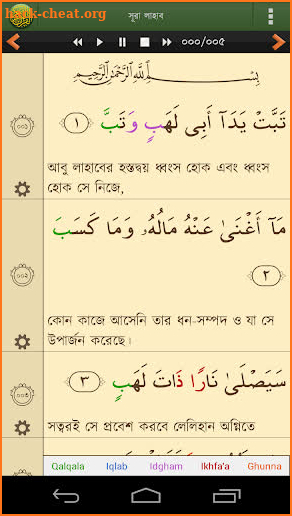 hack-cheat.org
সূরা লাহাব
০০০/০০৫
بِسْمِ اللَّهِ الرَّحْمَٰنِ الرَّحِيمِ
تَبَّتْ يَدَآ أَبِى لَهَبٍ وَتَبَّ ١
০০১
আবু লাহাবের হস্তদ্বয় ধ্বংস হোক এবং ধ্বংস
হোক সে নিজে,
مَآ أَغْنَىٰ عَنْهُ مَالُهُۥ وَمَا كَسَبَ
٢
০০২
কোন কাজে আসেনি তার ধন-সম্পদ ও যা সে
উপার্জন করেছে।
سَيَصْلَىٰ نَارًا ذَاتَ لَهَبٍ ٣
০০৩
সত্বরই সে প্রবেশ করবে লেলিহান অগ্নিতে
Qalqala Iqlab Idgham Ikhfa'a Ghunna
hack-cheat.org